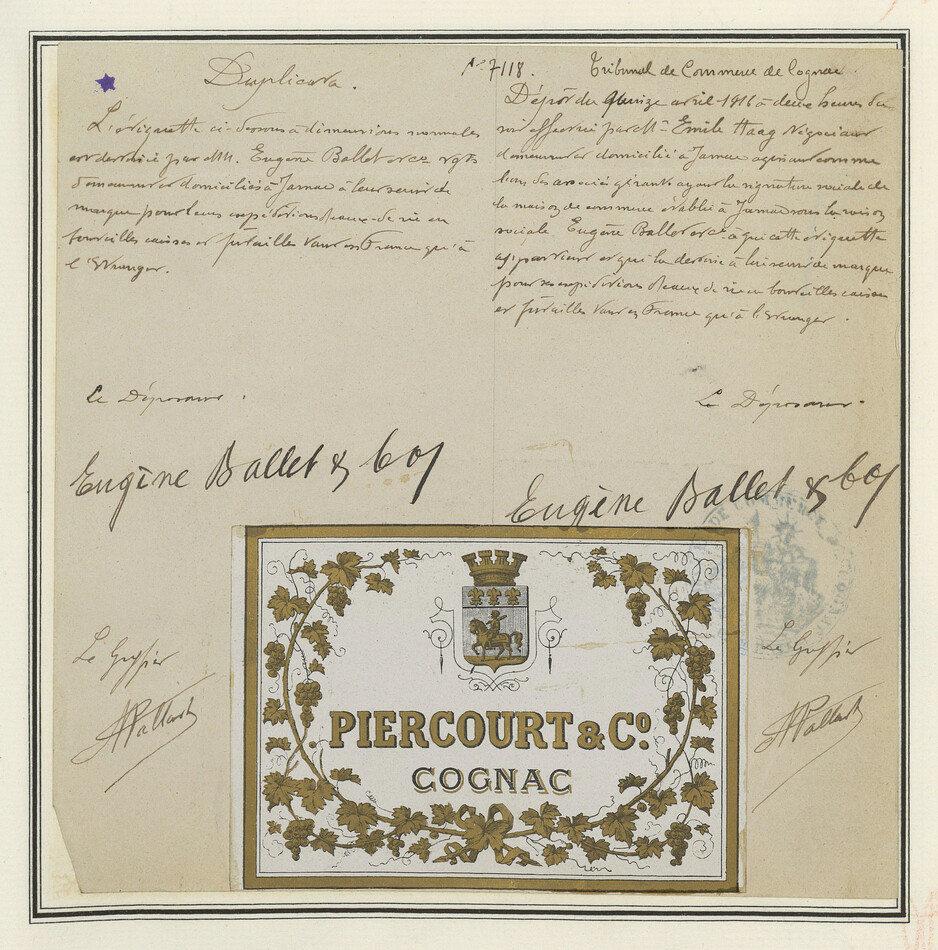 Duplicata.
L'étiquette ci-dessous à dimensions normales
est destinée par MM. Eugène Ballet et Cie Ngts
demeurant et domiciliés à Jarnac à leur servir de
marque pour leurs expéditions d'eaux-de-vie en
bouteilles caisses et futailles tant en France qu'à
l'Etranger.
Le Déposant.
Eugène Ballet & Co
Le Greffier
N° 7118.
Tribunal de Commerce de Cognac
Dépôt du quinze avril 1916 à deux heures du
soir effectué par Mr Emile Haag Négociant
demeurant et domicilié à Jarnac agissant comme
l'un des associés gérants ayant la signature sociale de
la maison de commerce établie à Jarnac sous la raison
sociale Eugène Ballet et Cie à qui cette étiquette
appartient et qui la destine à lui servir de marque
pour ses expéditions d'eaux de vie en bouteilles caisses
et futailles tant en France qu'à l'Etranger.
Le Déposant.
Eugène Ballet & Co
Le Greffier
DE COMMERCE
PIERCOURT & Co.
COGNAC